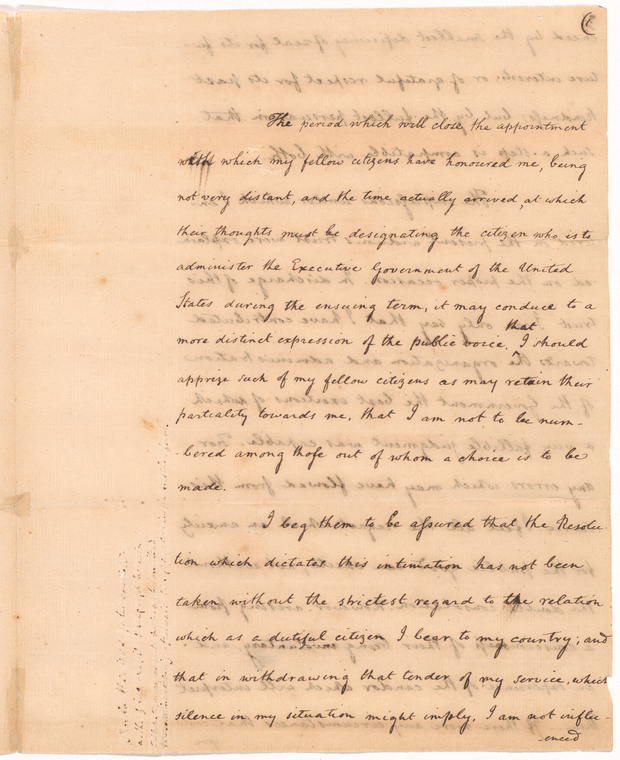 The period which will close the appointment
with which my fellow citizens have honoured me, being
not very distant, and the time actually arrived, at which
their thoughts must be designating the citizen who is to
administer the Executive Government of the United
States during the ensuing term, it may conduce to a
more distinct expression of the public voice, that I should
apprize such of my fellow citizens as may retain their
partiality towards me, that I am not to be num-
-bered among those out of whom a choice is to be
made.
I beg them to be assured that the Resolu-
tion which dictates this intimation has not been
taken without the strictest regard to the relation
which as a dutiful citizen I bear to my country; and
that in withdrawing that tender of my service, which
silence in my situation might imply, I am not influ-
-enced